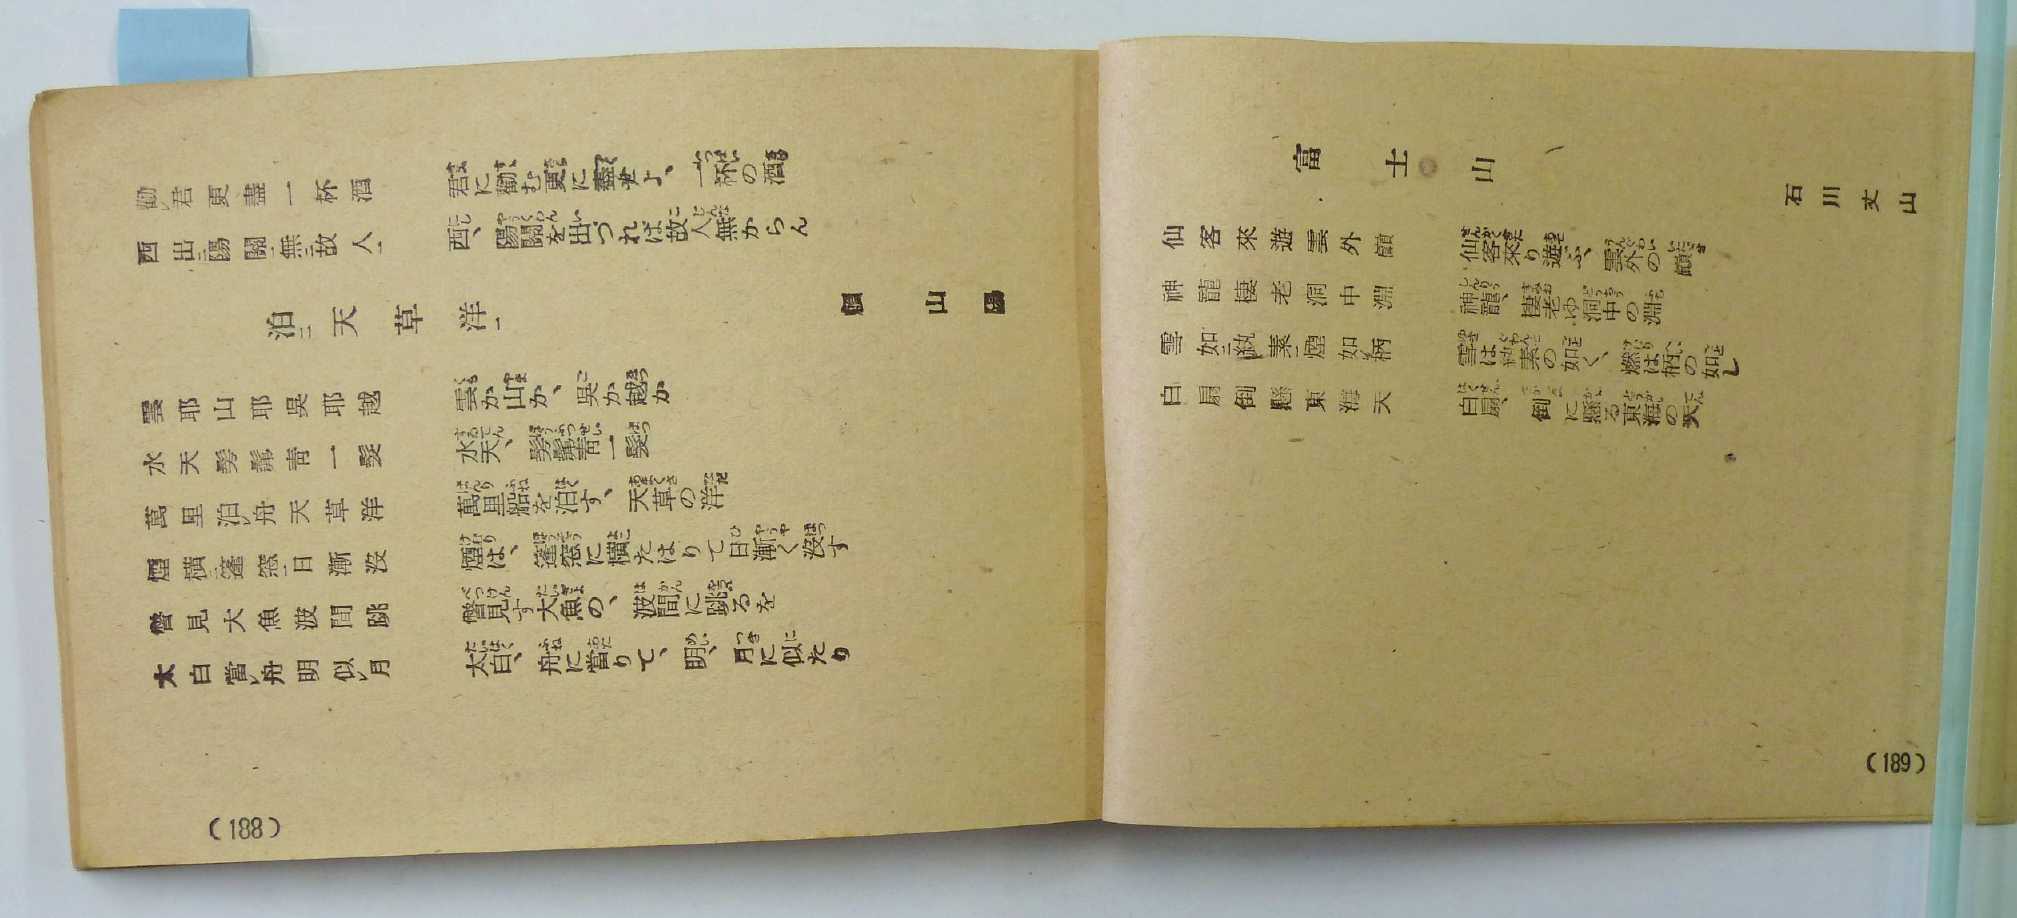 勸君更盡一杯酒
君に勸む更に盡せよ、一杯の酒
西出陽關無故人
西、陽關を出づれば故人無からん
泊天草洋
頼山陽
雲耶山耶吳耶越
雲か山か、吳か越か
水天髣髴靑一髮
水天、髣髴靑一髮
萬里泊舟天草洋
萬里船を泊す、天草の洋
煙橫篷窓日漸沒
煙は、篷窓に橫たはりて日漸く沒す
瞥見大魚波間跳
瞥見す大魚の、波間に跳るを
太白當舟明似月
太白、舟に當りて、明、月に似たり
(188)
富士山
石川丈山
仙客來遊雲外巓
仙客來り遊ぶ、雲外の巓
神龍棲老洞中淵
神龍、棲老ゆ洞中の淵
雪如紈素煙如柄
雪は紈素の如く、燃は柄の如し
白扇倒懸東海天
白扇、倒に懸る東海の天
(189)